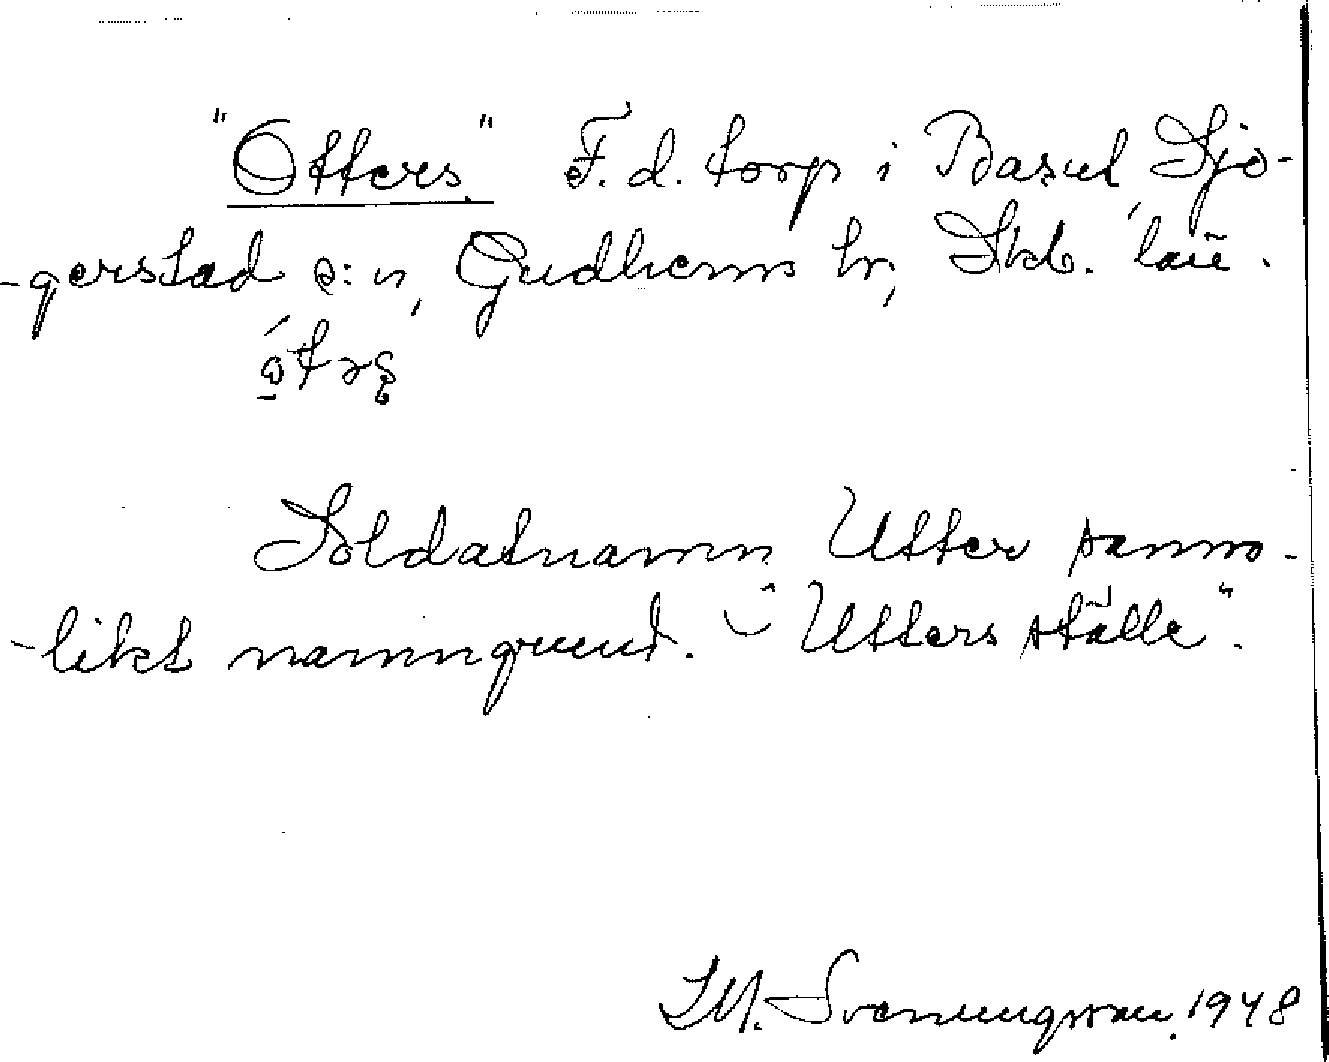 "Otters" F.d. torp i Basul, Sjo-
-gerstad s:n, Gudhems hr, Skb. län.
Soldatnamn Utter sanno-
-likt namngrund. "Utters ställe".
Svenungsson 1948